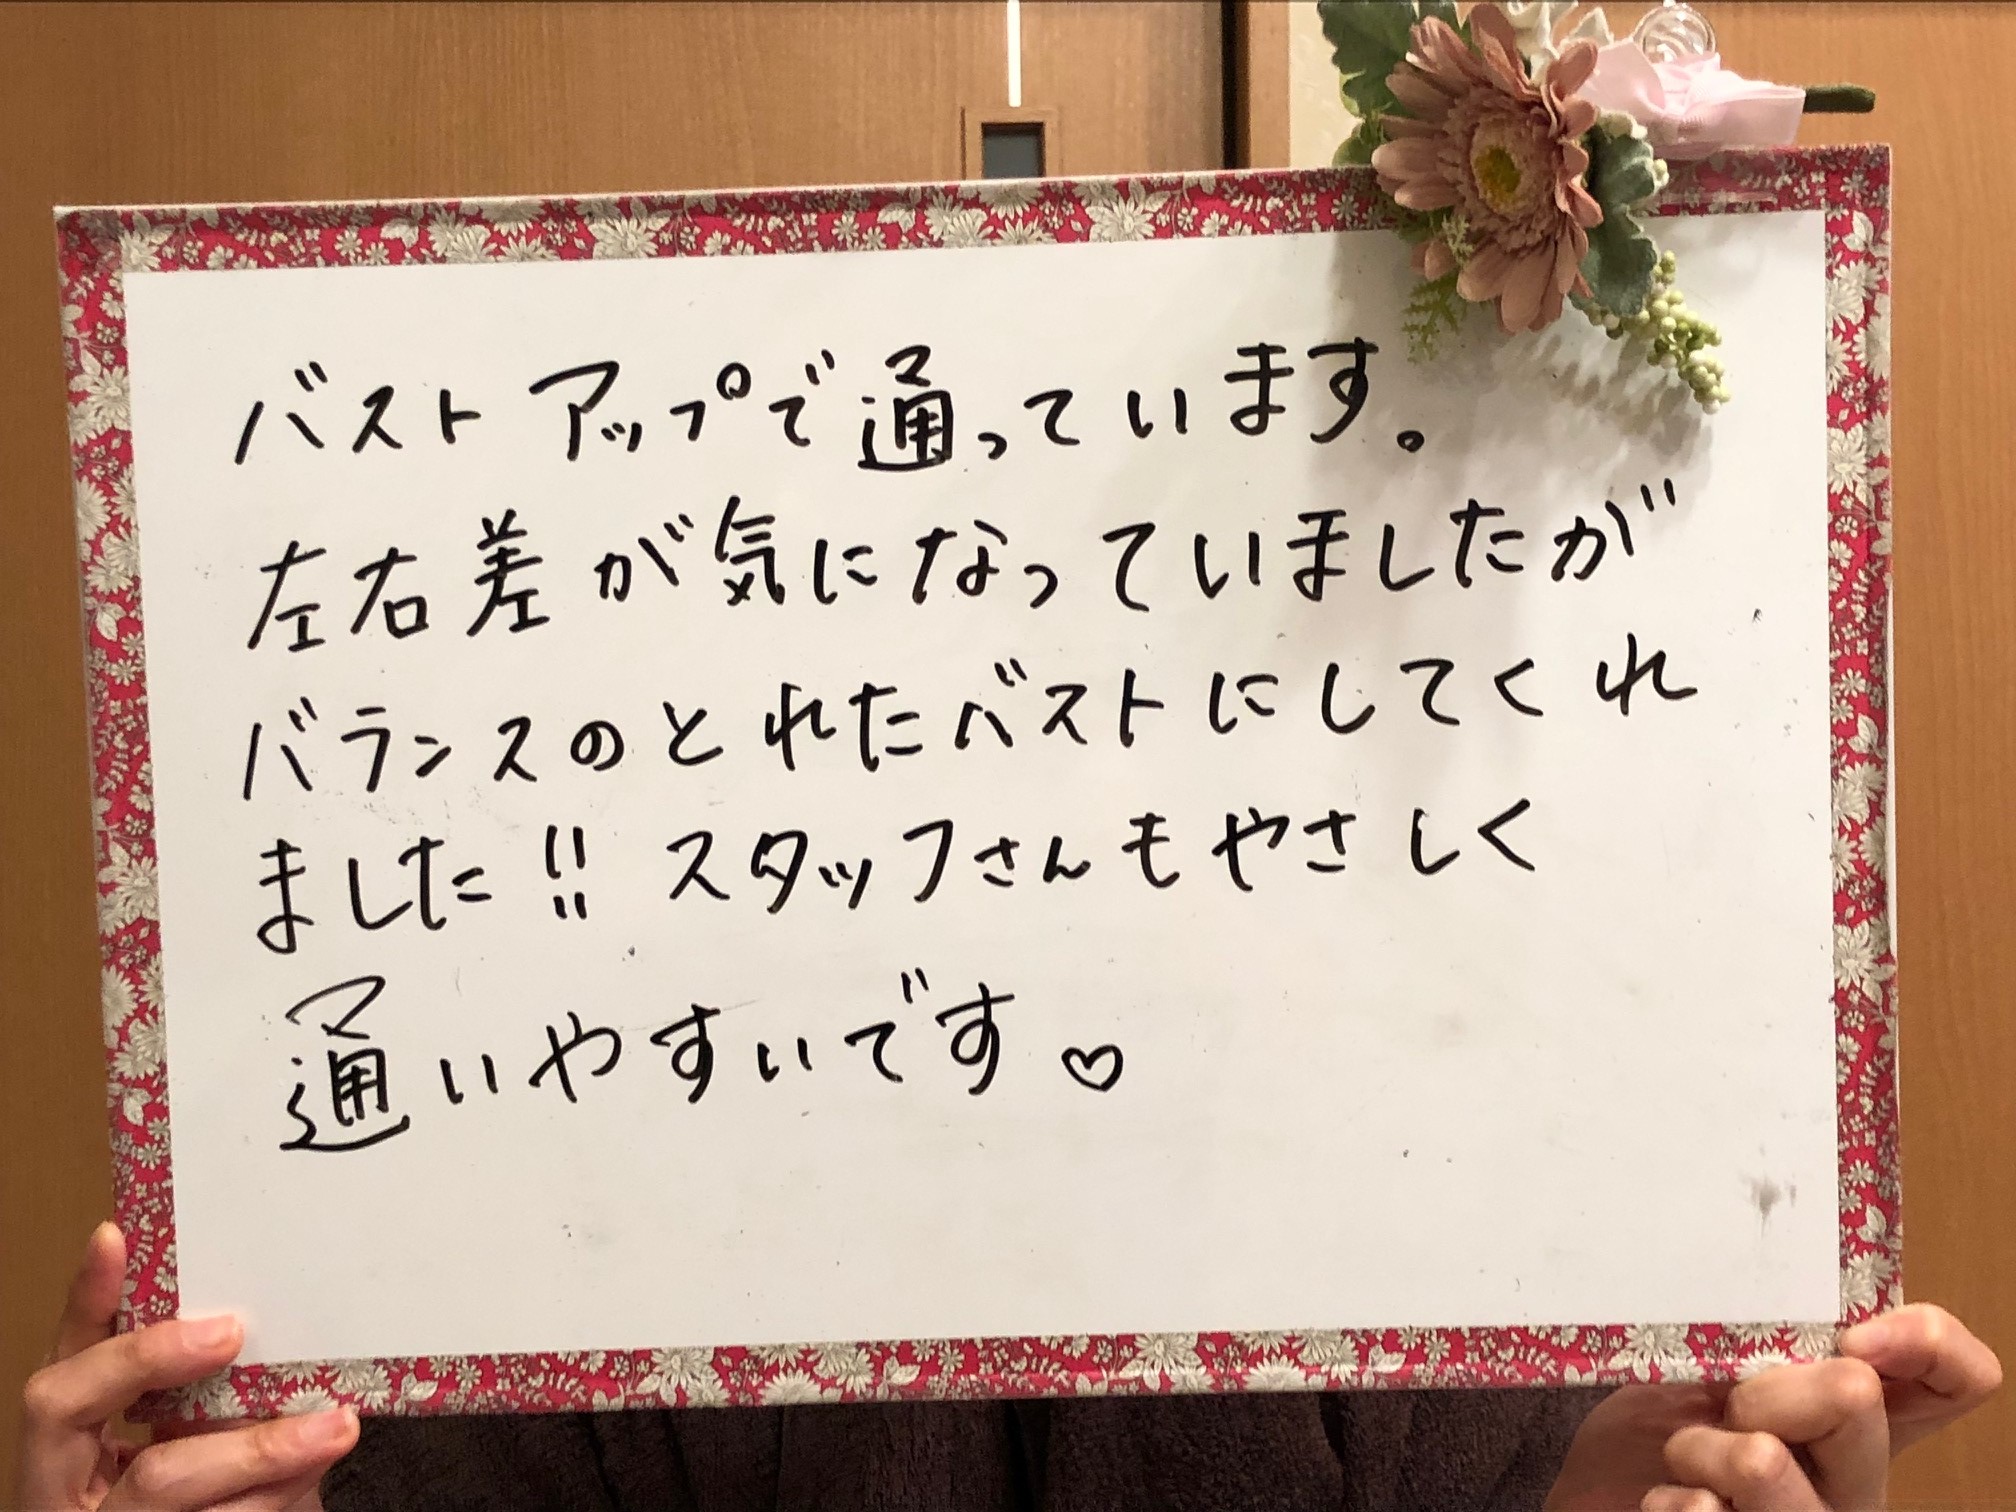 バストアップで通っています。
左右差が気になっていましたが
バランスのとれたバストにしてくれ
ました!! スタッフさんもやさしく
通いやすいです♡